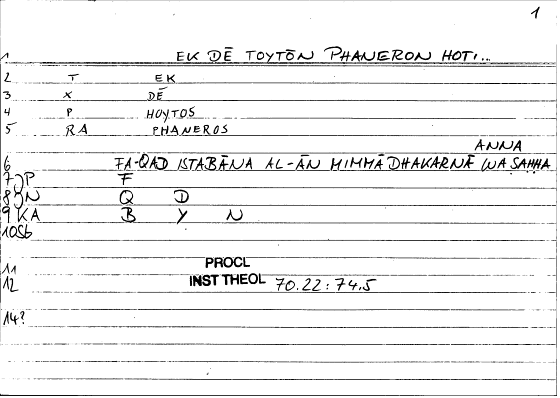 1
1 EK DĒ TOYTŌN PHANERON HOTI...
2 T EK
3 X DĒ
4 P HOYTOS
5 RA PHANEROS
ANNA
6 FA-QAD ISTABĀNA AL-ĀN MIMMĀ DHAKARNĀ WA SAHHA
7 JP F
8 JN Q D
9 KA B Y N
10 Sb
11 PROCL
12 INST THEOL 70.22:74.5
14?